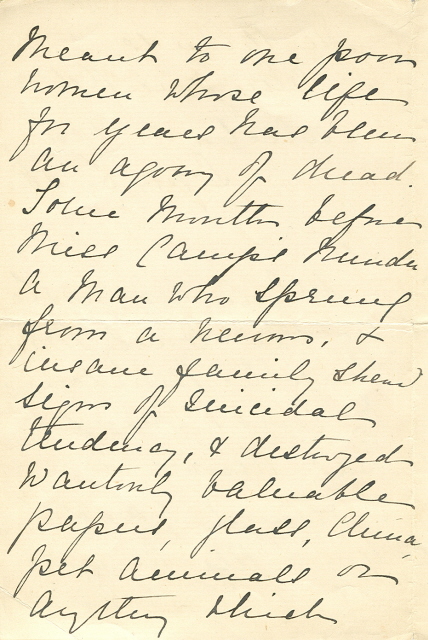 meant to one poor
women whose life
for years has been
an agony of dread.
Some months before
Miss Camp's Murder
a man who sprung
from a nervous, &
insane family shewd
signs of suicidal
tendency, & destroyed
wantonly valuable
papers, glass, China,
pet animals or
anything which